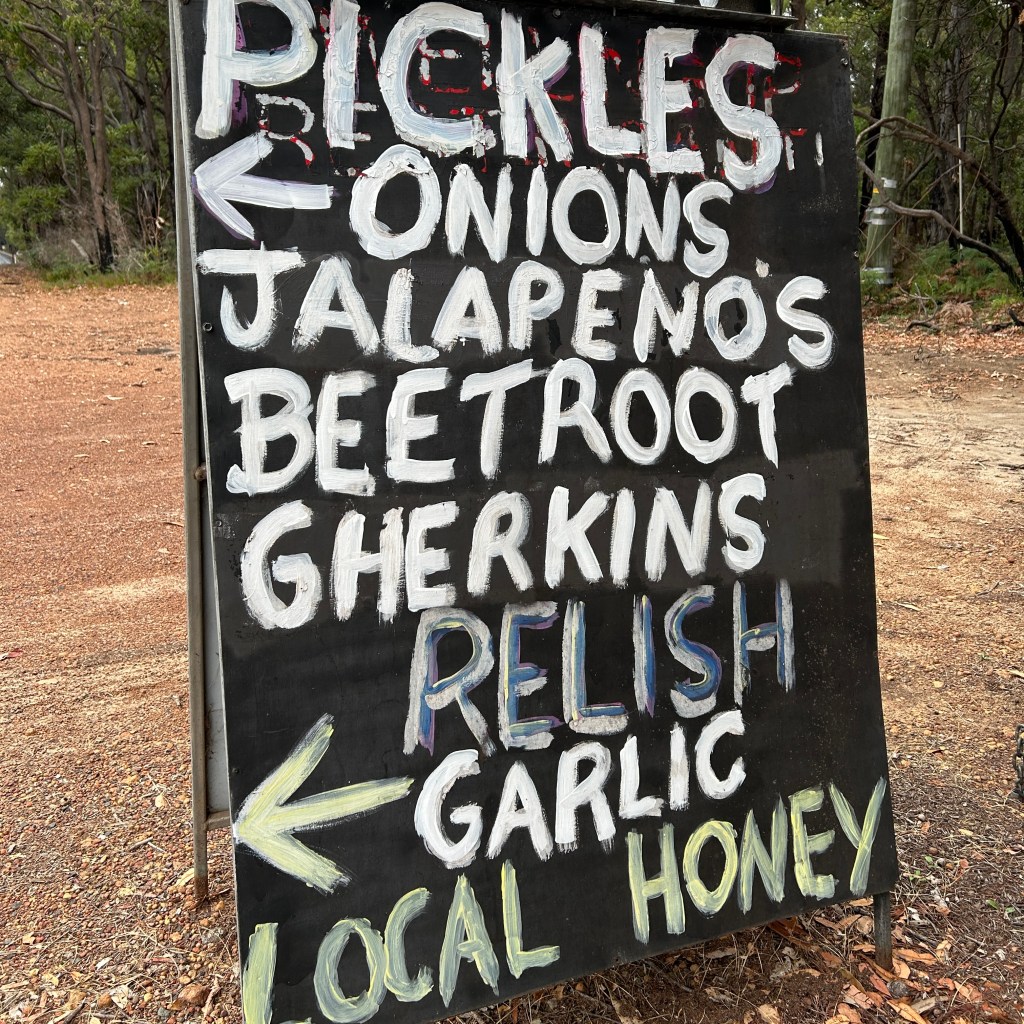 PICKLES
ONIONS
JALAPENO'S
BEETROOT
GHERKINS
RELISH
GARLIC
LOCAL HONEY